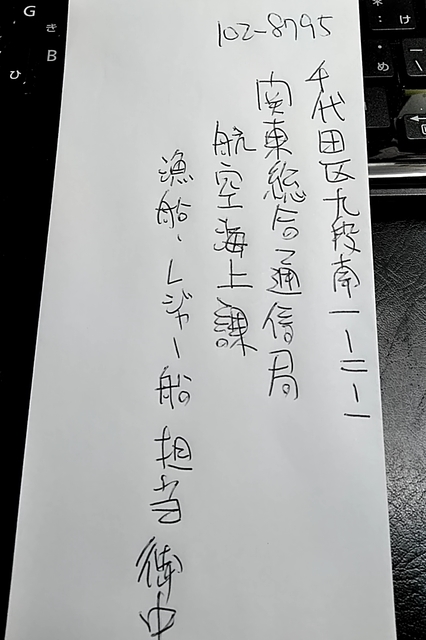 102-8795
千代田区九段南一ー二ー一
関東総合通信局
航空海上課
漁船、レジャー船 担当 御中
G
き
B
ひ
*
: け
・ め